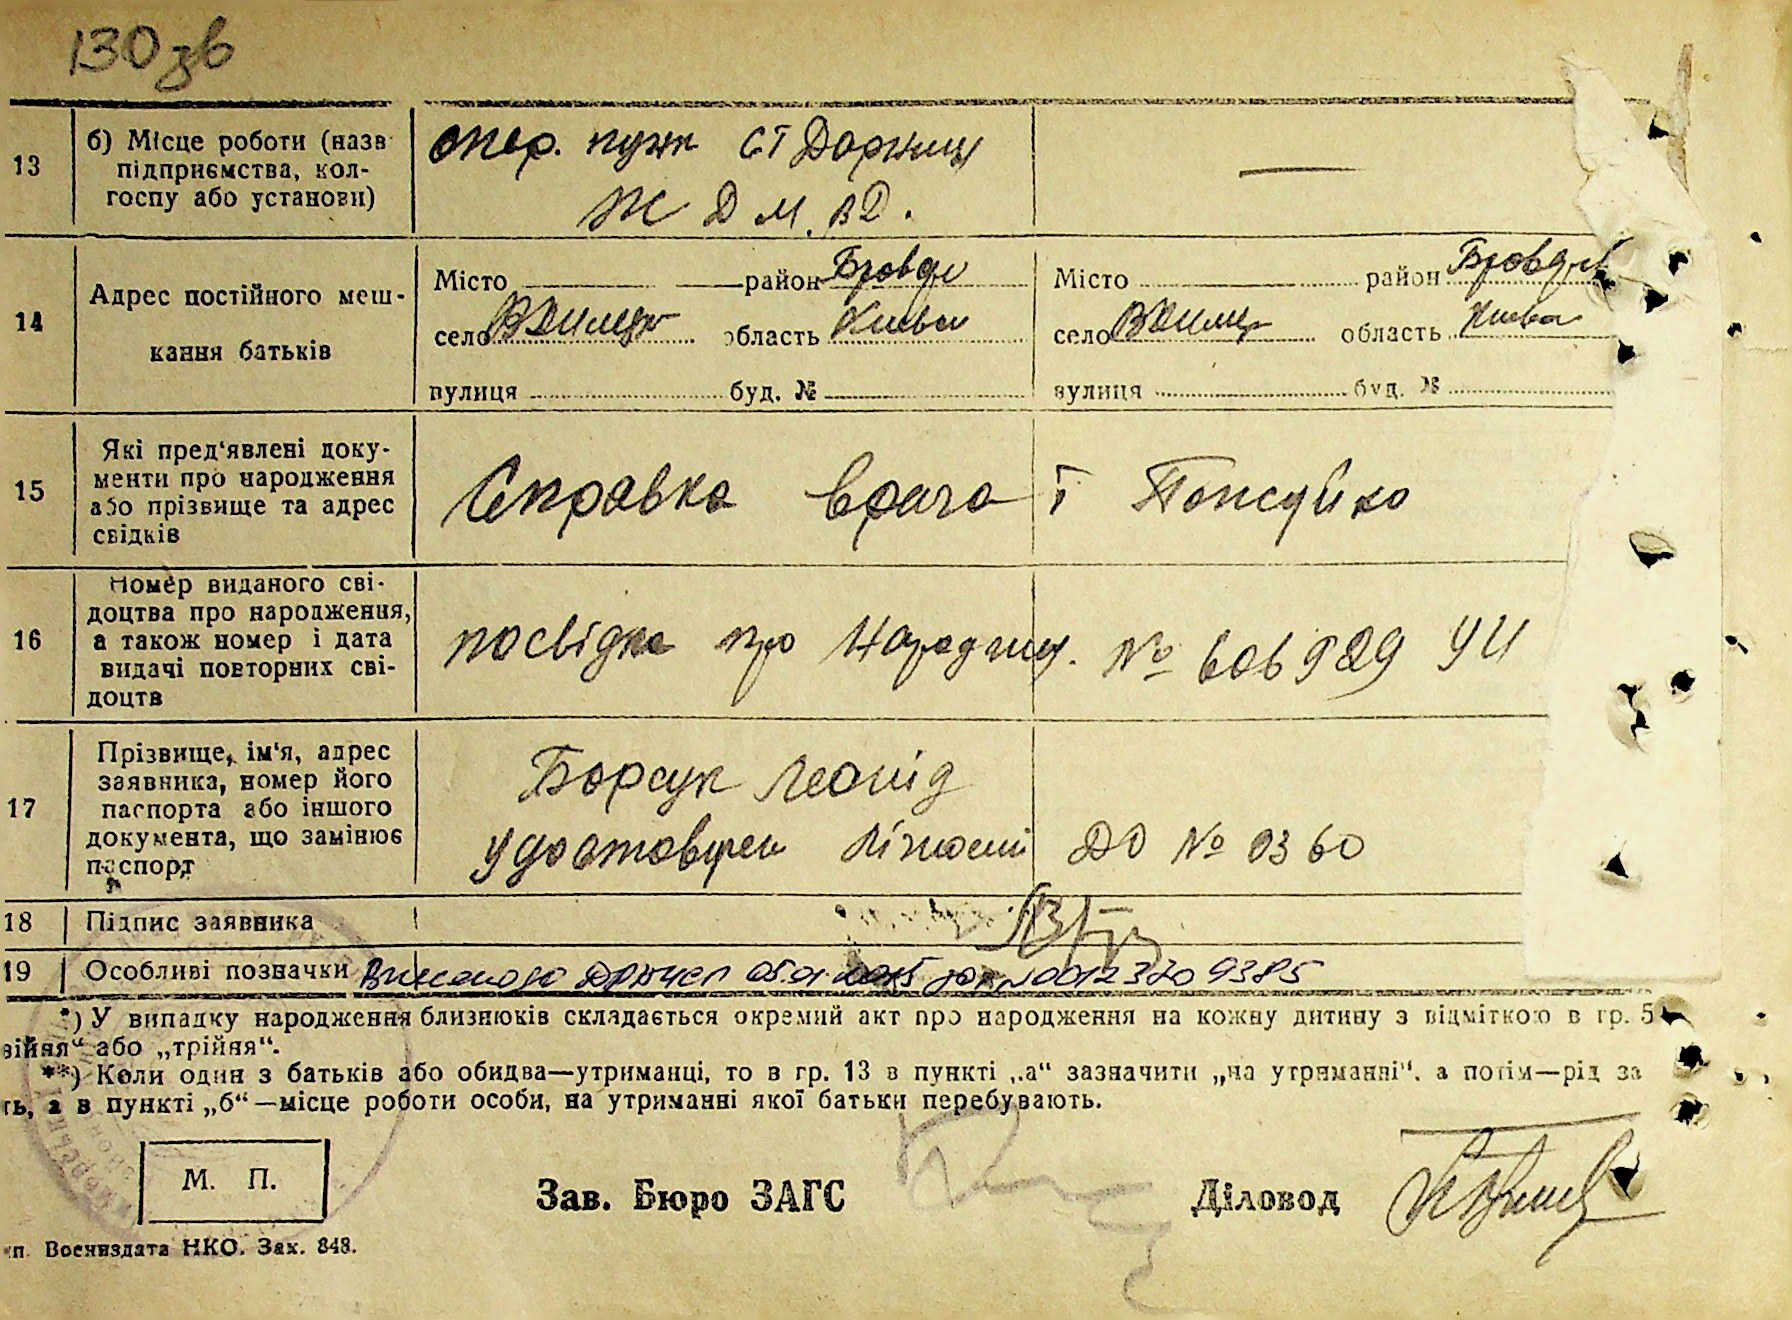 130зв
13
б) Місце роботи (назв
підприємства, кол-
госпу або установи)
опер. пункт ст Дарниц
Ж Д М. ВД.
—
14
Адрес постійного меш-
кання батьків
Місто район Бровар
село область Києва
вулиця буд. №
Місто район Бровар
село область Києва
вулиця буд. №
15
Які пред‘явлені доку-
менти про народження
або прізвище та адрес
свідків
Справка врача т
16
Номер виданого сві-
доцтва про народження,
а також номер і дата
видачі повторних сві-
доцтв
посвідка про Народжен. № 606929 УИ
17
Прізвище, ім‘я, адрес
заявника, номер його
паспорта або іншого
документа, що замінює
паспорт
Борсук Леонід
удостоверен лічности ДО № 0360
18
Підпис заявника
19
Особливі позначки
*) У випадку народження близнюків складається окремий акт про народження на кожну дитину з відміткою в гр. 5
війня“ або „трійня“.
**) Коли один з батьків або обидва—утриманці, то в гр. 13 в пункті „а“ зазначити „на утриманні“, а потім—рід за
ть, а в пункті „б“—місце роботи особи, на утриманні якої батьки перебувають.
М. П.
Зав. Бюро ЗАГС
Діловод
п. Воениздата НКО. Зак. 848.